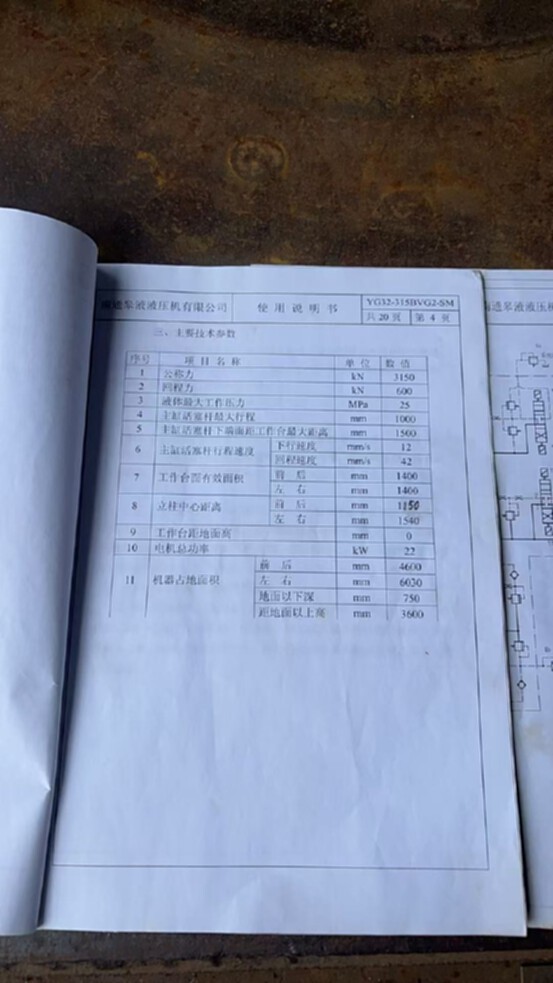 南通皋液液压机有限公司 使用说明书 YG32-315BVG2-SM
共 20 页 第 4 页
三、主要技术参数
序号 项目名称 单位 数值
1 公称力 kN 3150
2 回程力 kN 600
3 液体最大工作压力 MPa 25
4 主缸活塞杆最大行程 mm 1000
5 主缸活塞杆下端面距工作台最大距离 mm 1500
6 主缸活塞杆行程速度 下行速度 mm/s 12
回程速度 mm/s 42
7 工作台面有效面积 前后 mm 1400
左右 mm 1400
8 立柱中心距离 前后 mm 1150
左右 mm 1540
9 工作台距地面高 mm 0
10 电机总功率 kW 22
11 机器占地面积 前后 mm 4600
左右 mm 6030
地面以下深 mm 750
距地面以上高 mm 3600
南通皋液液压机